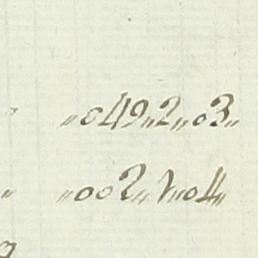 „049„2„03„
„002„1„04„